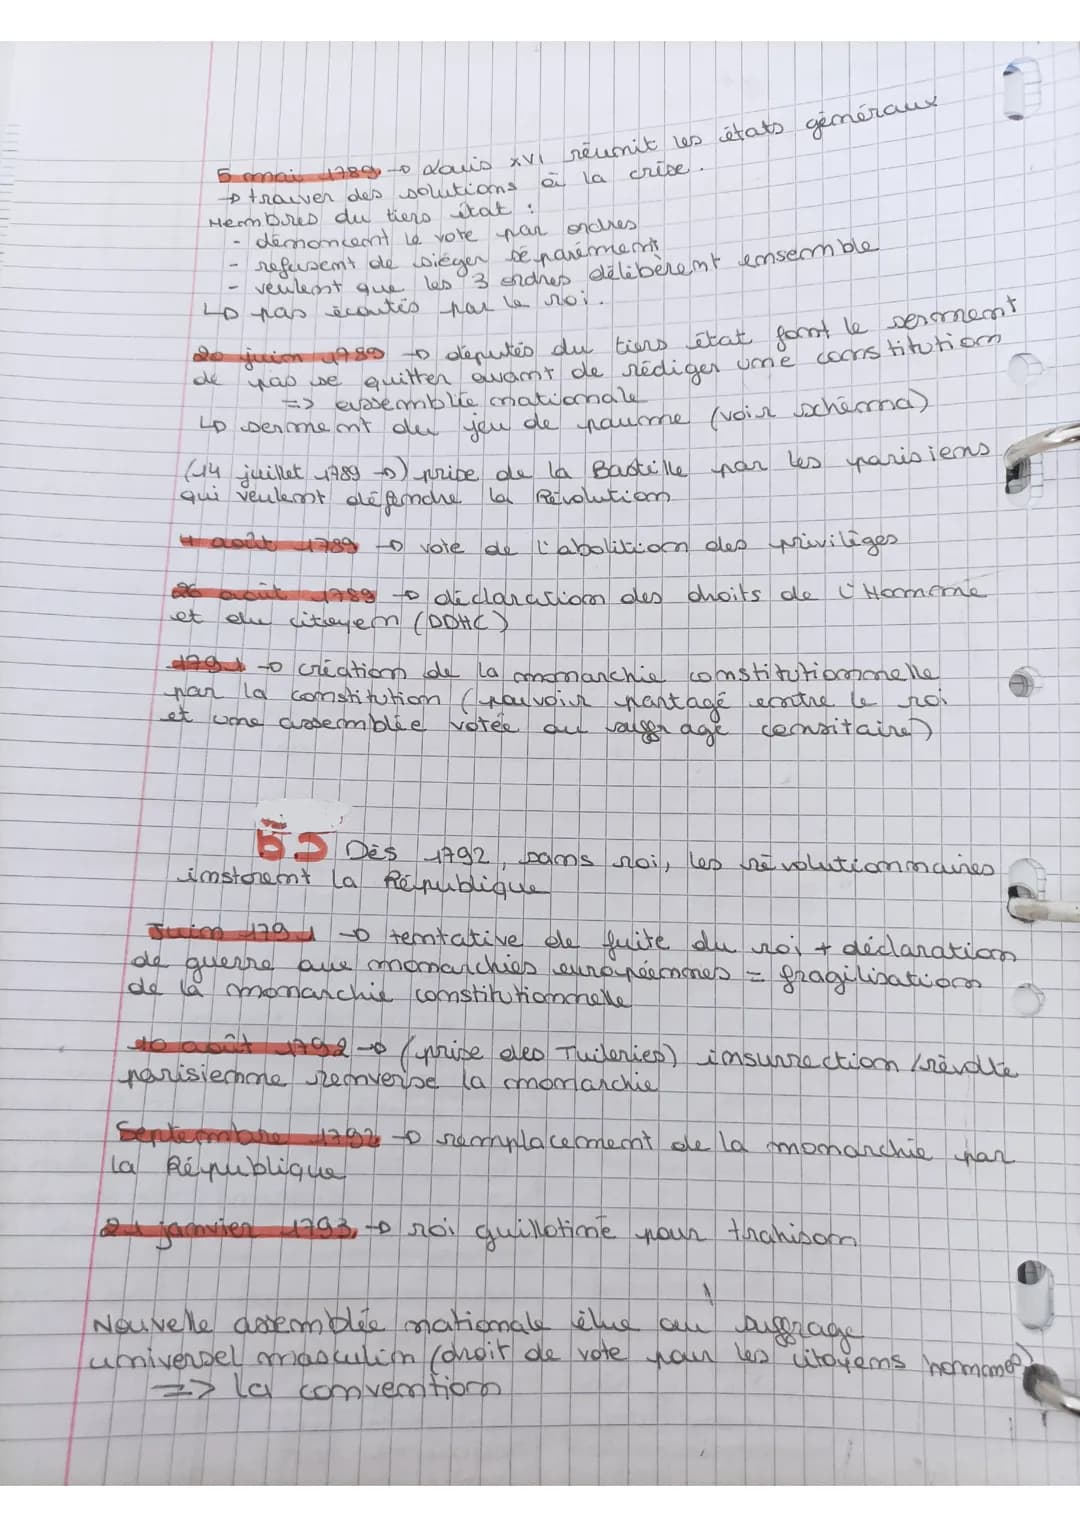 5 mai 1789 → Louis XVI réunit les états généraux
→ trouver des solutions à la crise.
Membres du tiers état :
- dénoncent le vote par ordres
- refusent de siéger séparément
- veulent que les 3 ordres délibèrent ensemble
↳ pas écoutés par le roi.
20 juin 1789 → députés du tiers état font le serment
de pas se quitter avant de rédiger une constitution
=> assemblée nationale
↳ serment du jeu de paume (voir schéma)
(14 juillet 1789 →) prise de la Bastille par les parisiens
qui veulent défendre la Révolution
4 août 1789 → vote de l'abolition des privilèges
26 août 1789 → déclaration des droits de l'Homme
et du citoyen (DDHC)
1791 → création de la monarchie constitutionnelle
par la constitution (pouvoir partagé entre le roi
et une assemblée votée au suffrage censitaire)
Dès 1792, sans roi, les révolutionnaires
instorent la République
Juin 1791 → tentative de fuite du roi + déclaration
de guerre aux monarchies européennes = fragilisation
de la monarchie constitutionnelle
10 août 1792 → (prise des Tuileries) insurrection / révolte
parisienne renverse la monarchie
Septembre 1792 → remplacement de la monarchie par
la République
21 janvier 1793 → roi guillotiné pour trahison
Nouvelle assemblée nationale élue au suffrage
universel masculin (droit de vote pour les citoyens hommes)
=> la convention